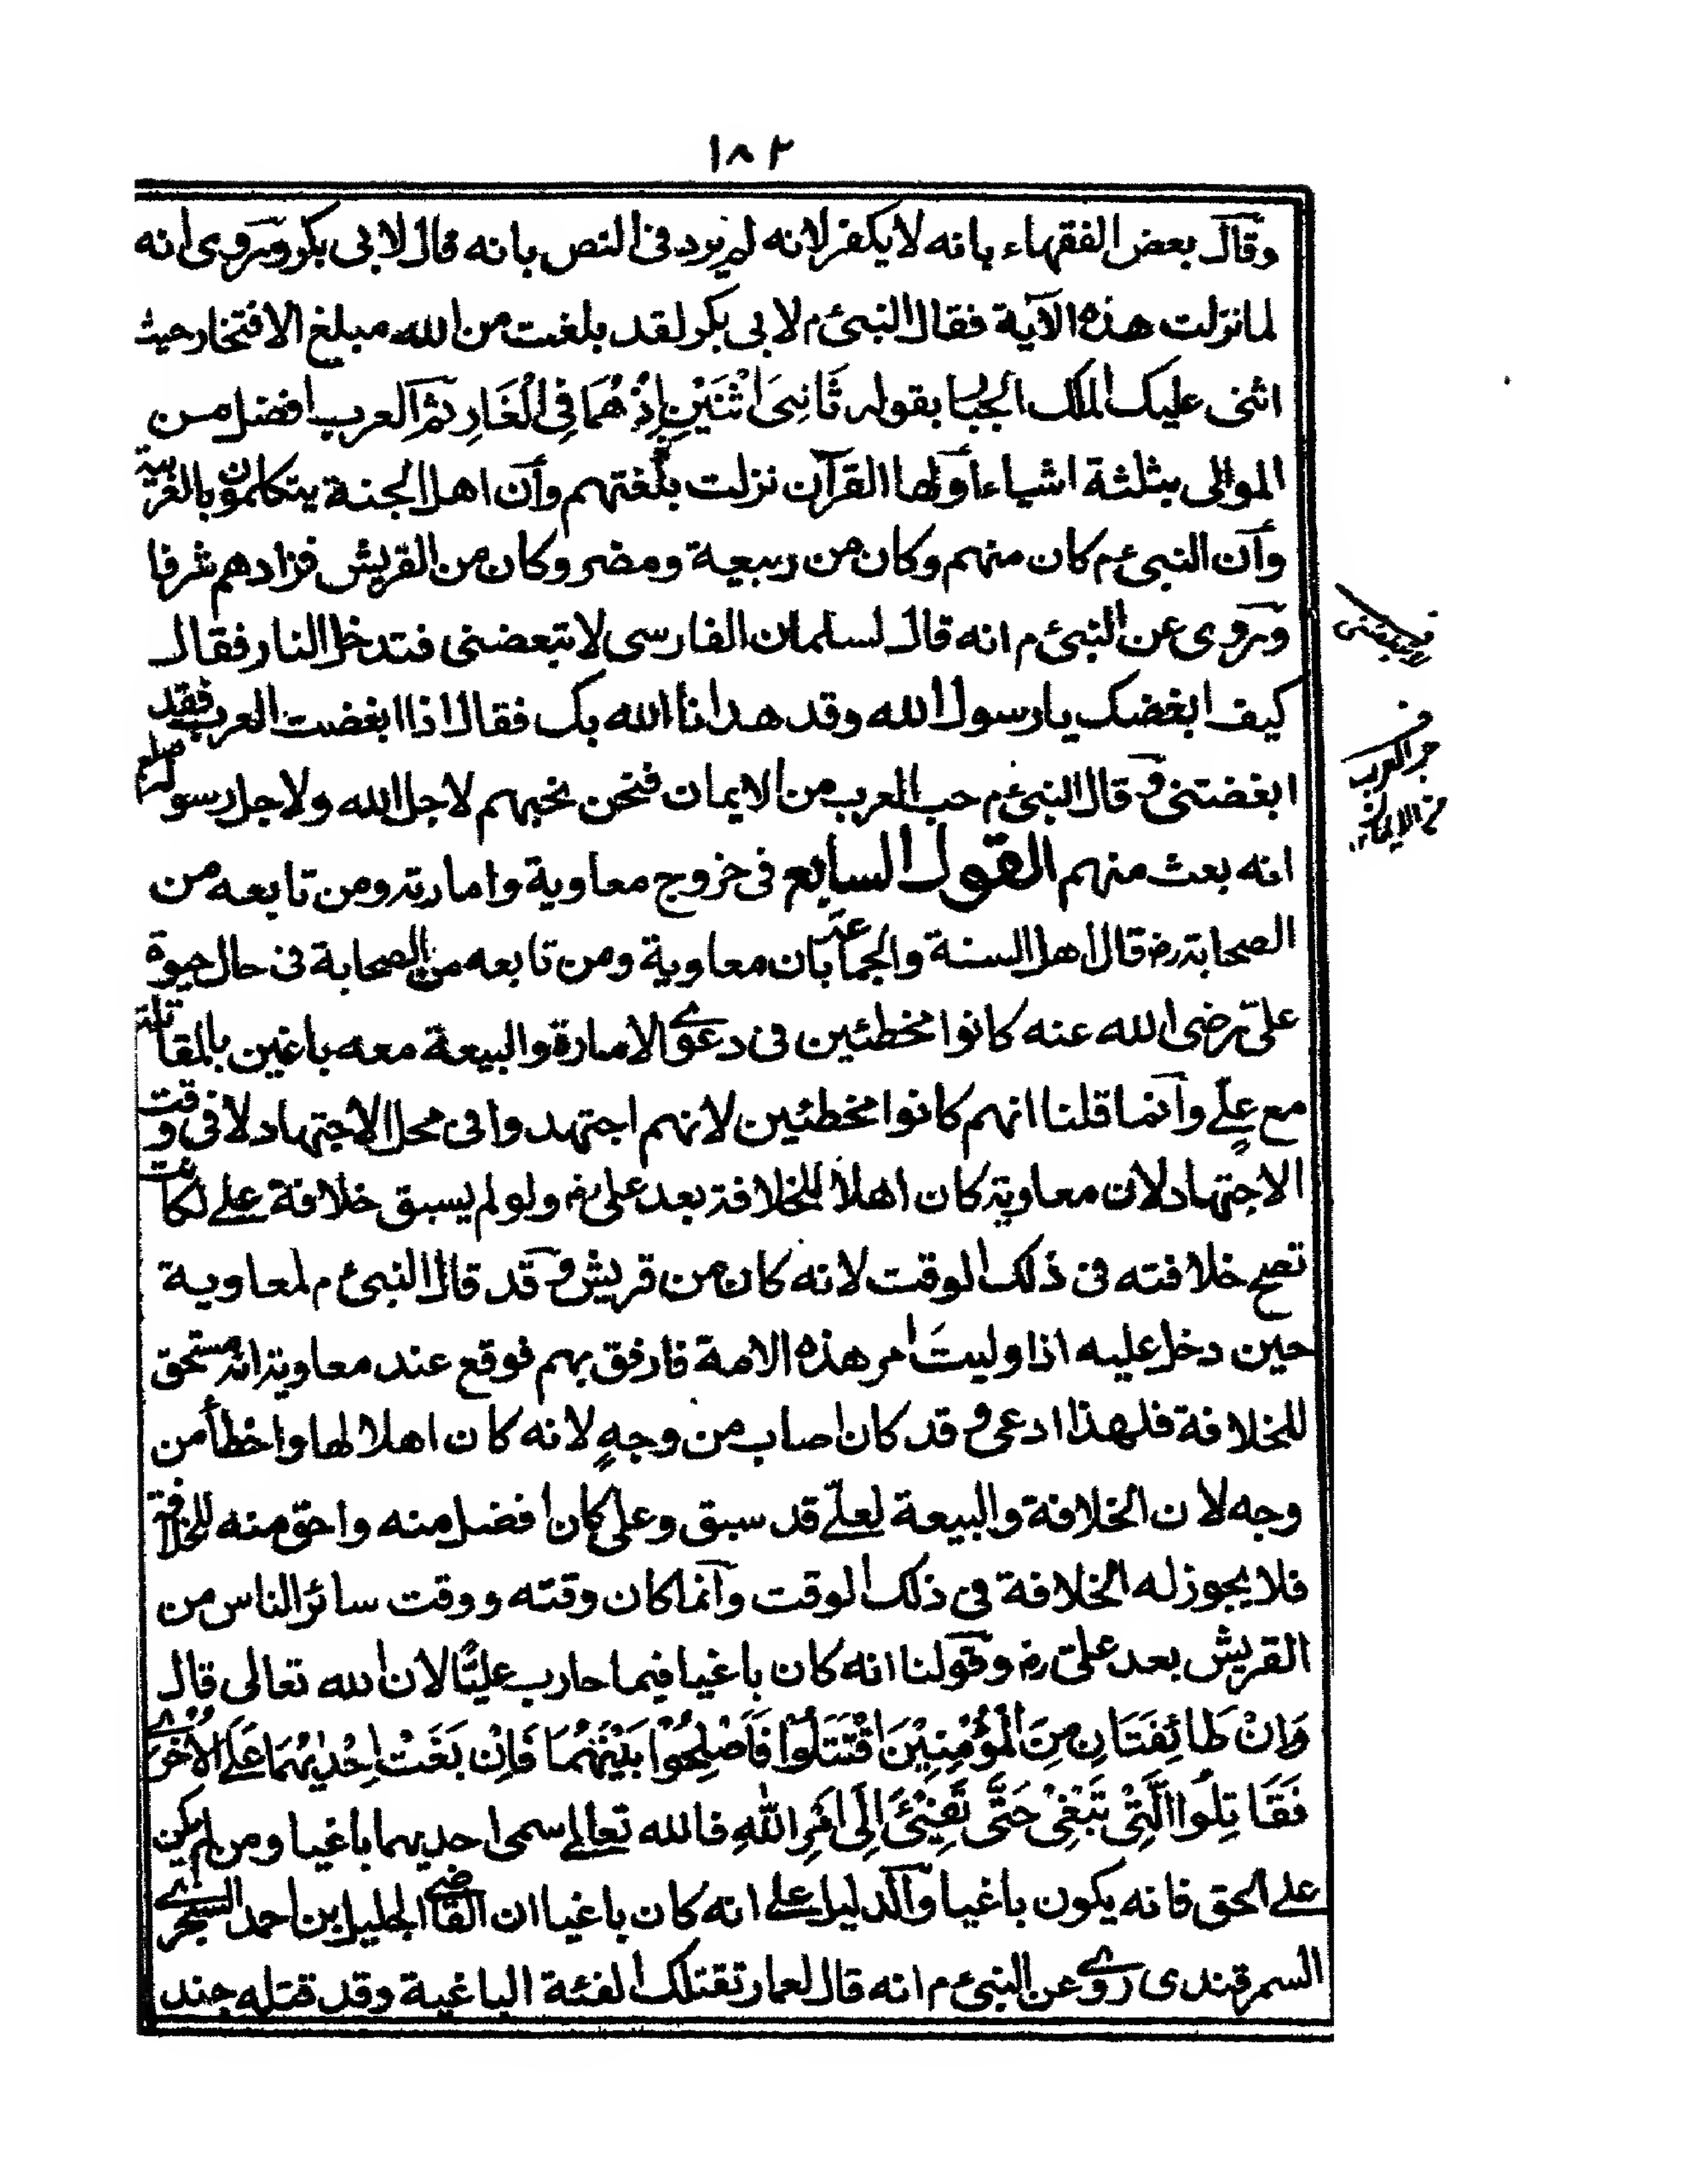 ١٨٢
وقال بعض الفقهاء بانه لا يكفر لانه لم يرد فى النص بانه قال لابى بكر وروى انه
لما نزلت هذه الآية فقال النبىء م لابى بكر لقد بلغت من الله مبلغ الافتخار حيث
اثنى عليك الملك الجبار بقوله ثَانِىَ اثْنَيْنِ إِذْ هُمَا فِى الْغَارِ ثم العرب افضل من
الموالى بثلثة اشياء اولها القرآن نزلت بلغتهم وان اهل الجنة يتكلمون بالعربية
وان النبىء م كان منهم وكان من ربيعة ومضر وكان من القريش فزادهم شرفا
وروى عن النبىء م انه قال لسلمان الفارسى لا تبغضنى فتدخل النار فقال
كيف ابغضك يا رسول الله وقد هدانا الله بك فقال اذا ابغضت العرب فقد
ابغضتنى وقال النبىء م حب العرب من الايمان فنحن نحبهم لاجل الله ولاجل رسوله صلعم
انه بعث منهم القول السابع فى خروج معاوية وامارته ومن تابعه من
الصحابة رض قال اهل السنة والجماعة بان معاوية ومن تابعه من الصحابة فى حال حيوة
علىّ رضى الله عنه كانوا مخطئين فى دعوى الامارة والبيعة معه باغين بالمقاتلة
مع علىٍّ وانما قلنا انهم كانوا مخطئين لانهم اجتهدوا فى محل الاجتهاد لا فى وقت
الاجتهاد لان معاوية كان اهلا للخلافة بعد على رض ولو لم يسبق خلافة على لكانت
تصح خلافته فى ذلك الوقت لانه كان من قريش وقد قال النبىء م لمعاوية
حين دخل عليه اذا وليتَ امر هذه الامة فارفق بهم فوقع عند معاوية انه مستحق
للخلافة فلهذا ادعى وقد كان اصاب من وجهٍ لانه كان اهلا لها واخطأ من
وجه لان الخلافة والبيعة لعلىّ قد سبق وعلى كان افضل منه واحق منه للخلافة
فلا يجوز له الخلافة فى ذلك الوقت وانما كان وقته ووقت سائر الناس من
القريش بعد علىّ رض وقولنا انه كان باغيا فيما حارب عليًّا لان الله تعالى قال
وَاِنْ طَائِفَتَانِ مِنَ الْمُؤْمِنِيْنَ اقْتَتَلُوْا فَاَصْلِحُوْا بَيْنَهُمَا فَاِنْ بَغَتْ اِحْدٰيهُمَا عَلَى الْاُخْرٰى
فَقَاتِلُوا الَّتِىْ تَبْغِىْ حَتَّى تَفِىْءَ اِلَى اَمْرِ اللّٰهِ فالله تعالى سمى احديهما باغيا ومن لم يكن
على الحق فانه يكون باغيا والدليل على انه كان باغيا ان القاضى الجليل بن احمد السجزى
السمرقندى روى عن النبىء م انه قال لعمار تقتلك الفئة الباغية وقد قتله جند
حب العرب
من الايمان